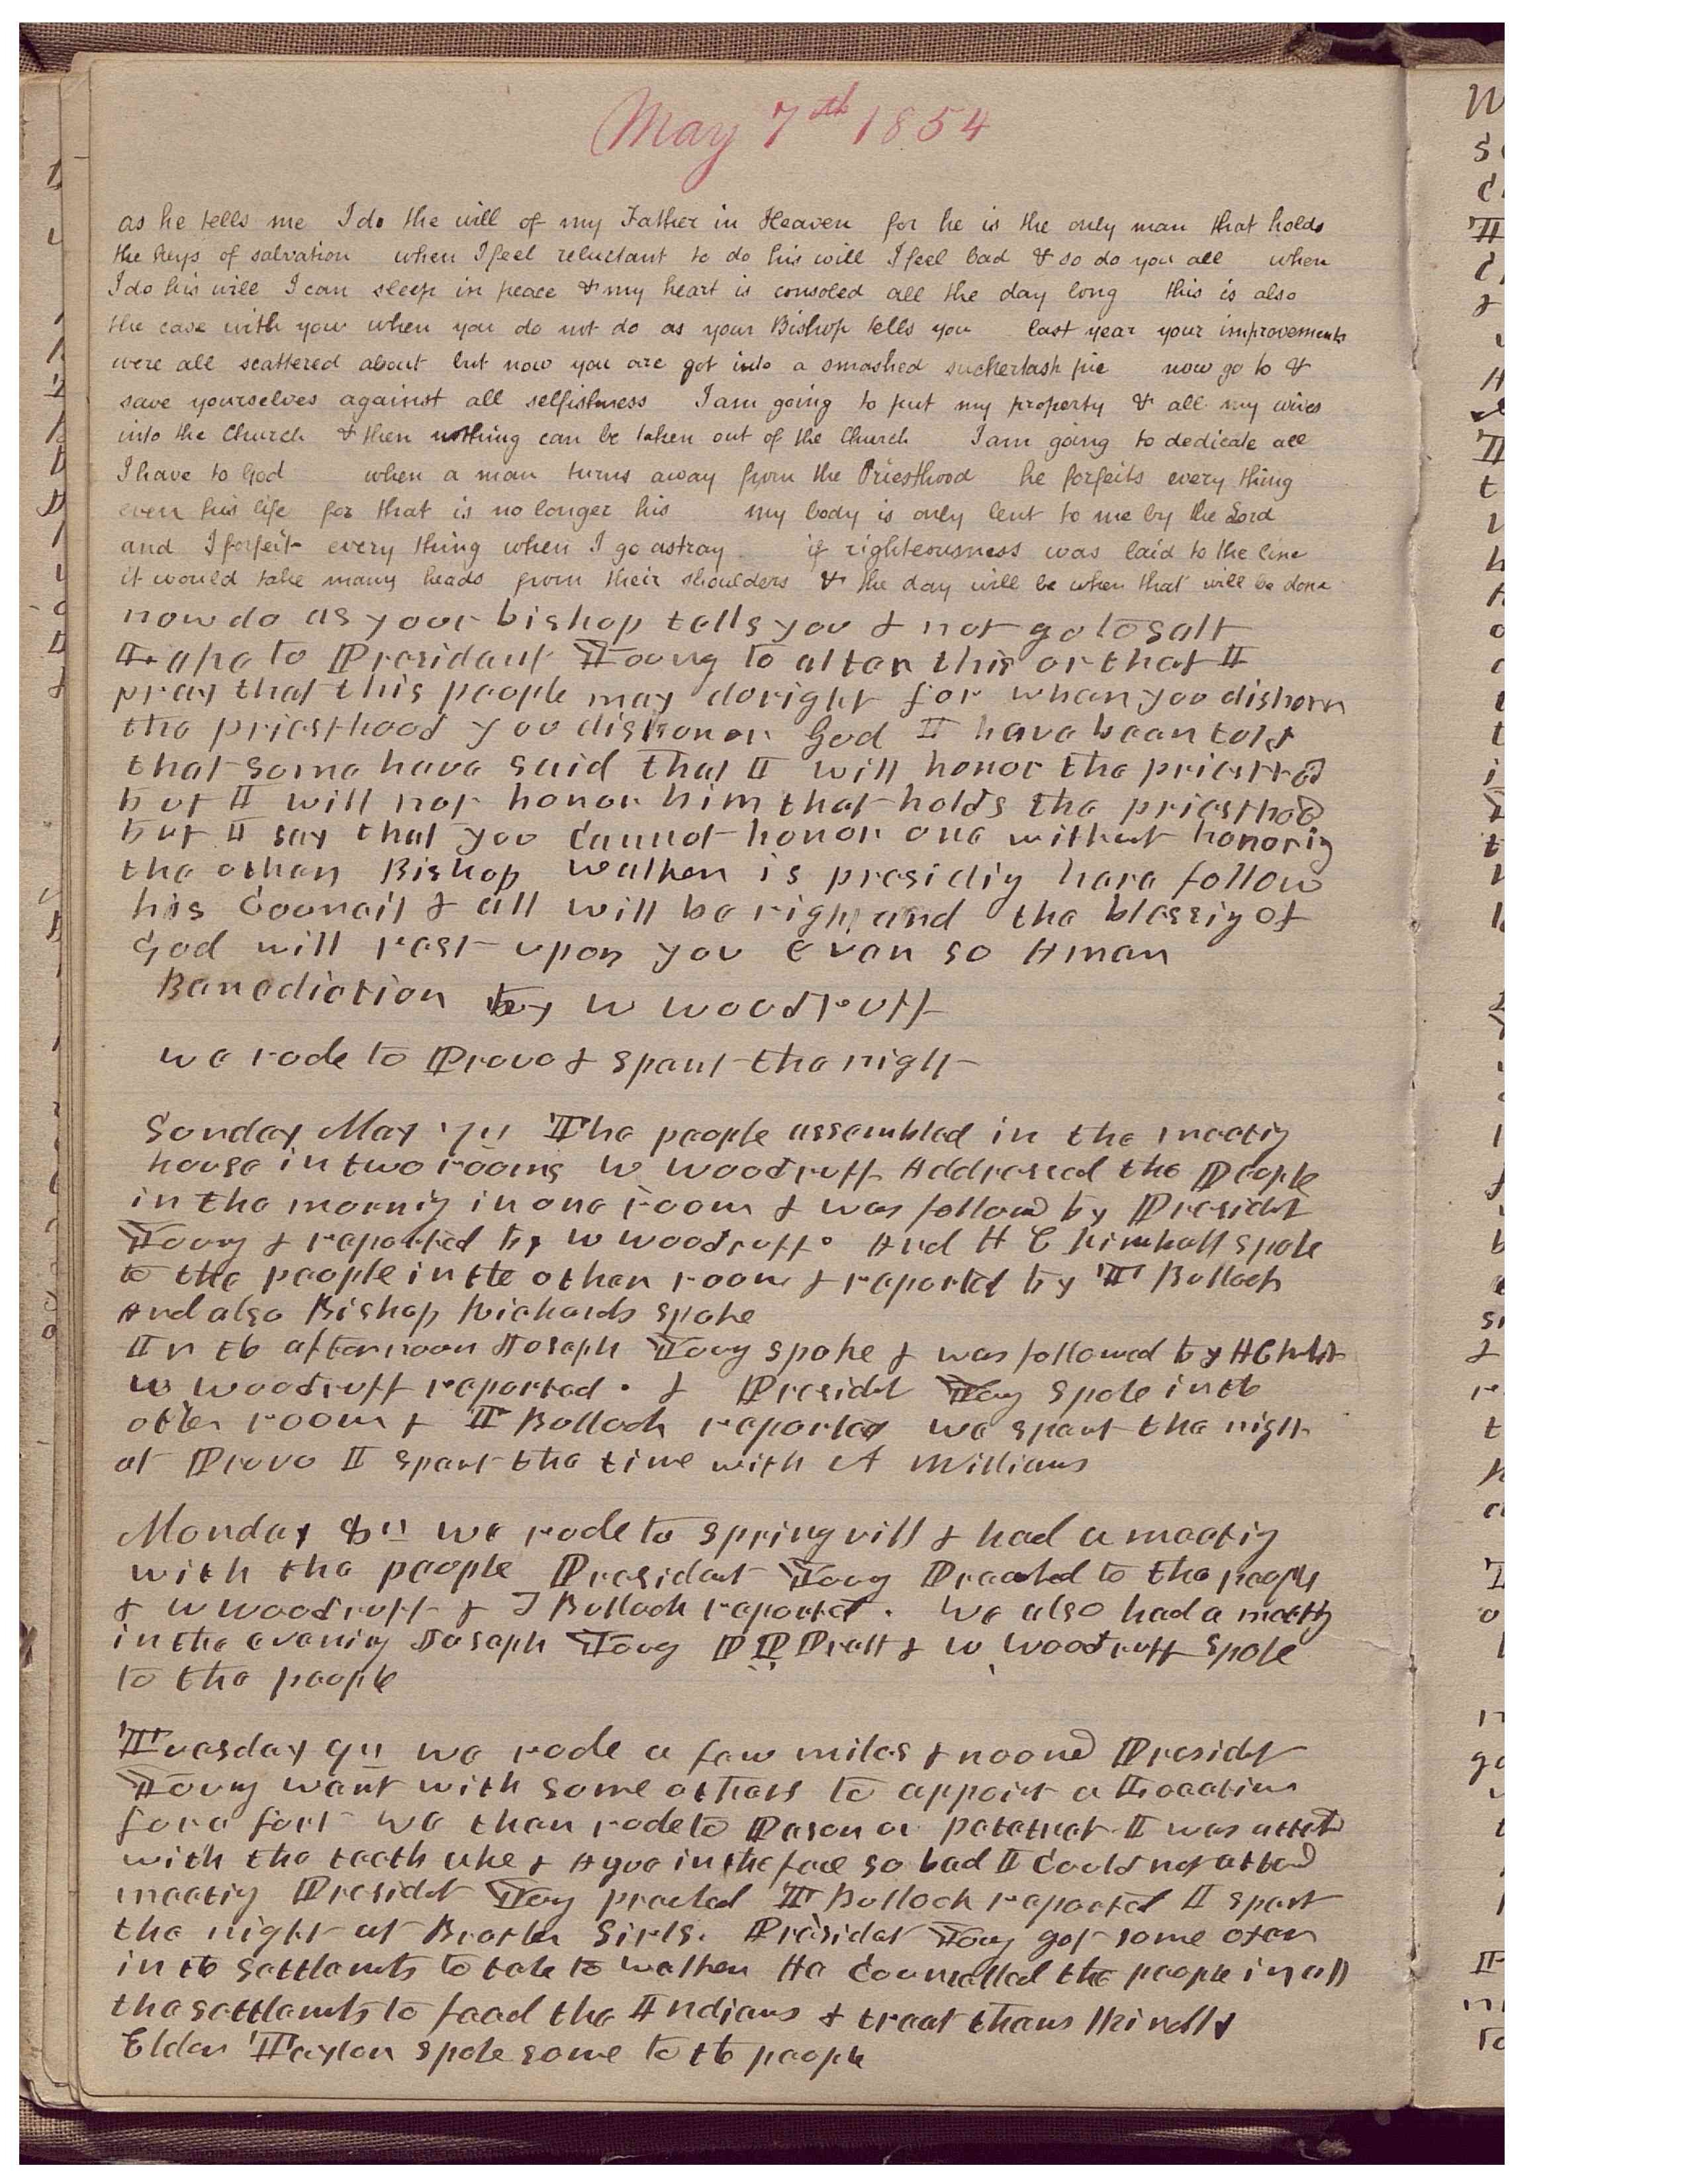 May 7th 1854
as he tells me I do the will of my Father in Heaven for he is the only man that holds
the keys of salvation when I feel reluctant to do his will I feel bad & so do you all when
I do his will I can sleep in peace & my heart is consoled all the day long this is also
the case with you when you do not do as your Bishop tells you last year your improvements
were all scattered about but now you are got into a smashed suckertash pie now go to &
save yourselves against all selfishness I am going to put my property & all my wives
into the Church & then nothing can be taken out of the Church I am going to dedicate all
I have to God when a man turns away from the Priesthood he forfeits every thing
even his life for that is no longer his my body is only lent to me by the Lord
and I forfeit every thing when I go astray if righteousness was laid to the line
it would take many heads from their shoulders & the day will be when that will be done
now do as your bishop tells you & not go to Salt
to President Young to alter this or that I
pray that this people may do right for when you dishonr
the priesthood you dishonor God I have been told
that some have said that I will honor the priesthod
but I will not honor him that holds the priesthod
but I say that you cannot honor one without honorig
the other Bishop Walker is presidig here follow
his Council & all will be right and the blessig of
God will rest upon you even so Amen
Benediction by W Woodruff
we rode to Provo & spent the night
Sunday May 7th The people assembled in the meetig
house in two rooms W Woodruff Addressed the People
in the mornig in one room & was followed by Presidet
Young & reported by W Woodruff. And H C Kimball spoke
to the people in the other room & reported by T Bullock
And also Bishop Richards spoke
In the afternoon Joseph Young spoke & was followed by H C
W Woodruff reported. & Presidet Young spoke in the
other room & T Bullock reported we spent the night
at Provo I spent the time with A Williams
Monday 8th we rode to Springvill & had a meetig
with the people President Young Preached to the people
& W Woodruff & T Bullock reported. We also had a meetig
in the evenig Joseph Young P P Pratt & W Woodruff spoke
to the people
Tuesday 9th we rode a few miles & nooned Presidet
Young went with some others to appoint a Location
for a fort we then rode to Payson or I was
with the teeth ake & Ague in the face so bad I could not attend
meetig Presidet Young preached T Bullock reported I spent
the night at Brother Presidet Young got some oxen
in the settlemets to take to Walker He councelled the people in all
the settlemets to feed the Indians & treat them Kindly
Elder Taylor spoke some to the people